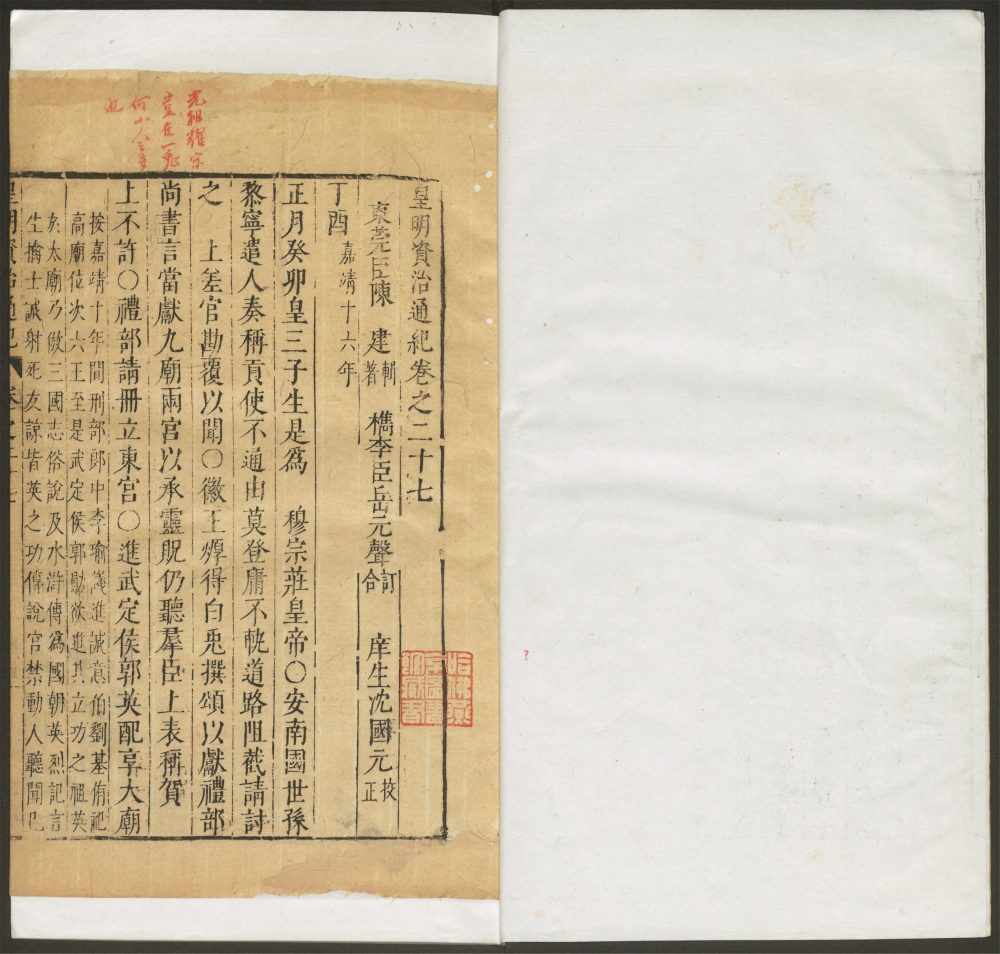 皇明資治通紀卷之二十七
東莞臣陳 建 輯著 檇李臣岳元聲 訂合 庠生沈國元 挍正
丁酉 嘉靖十六年
正月癸卯皇三子生是爲 穆宗莊皇帝〇安南國世孫
黎寧遣人奏稱貢使不通由莫登庸不軌道路阻截請討
之 上差官勘覆以聞〇徽王㷩得白兎撰頌以獻禮部
尚書言當獻九廟兩宮以承靈貺仍聽羣臣上表稱賀
上不許〇禮部請冊立東宮〇進武定侯郭英配享大廟
按嘉靖十年間刑部郎中李瑜議進誠意伯劉基侑祀
高廟位次六王至是武定侯郭勛欲進其立功之祖英
於太廟乃倣三國志俗說及水滸傳爲國朝英烈記言
生擒士誠射死友諒皆英之功傳說宮禁動人聽聞已
皇明資治通紀 卷之二十七
光祖耀宗
豈在一祀
何小人之
也